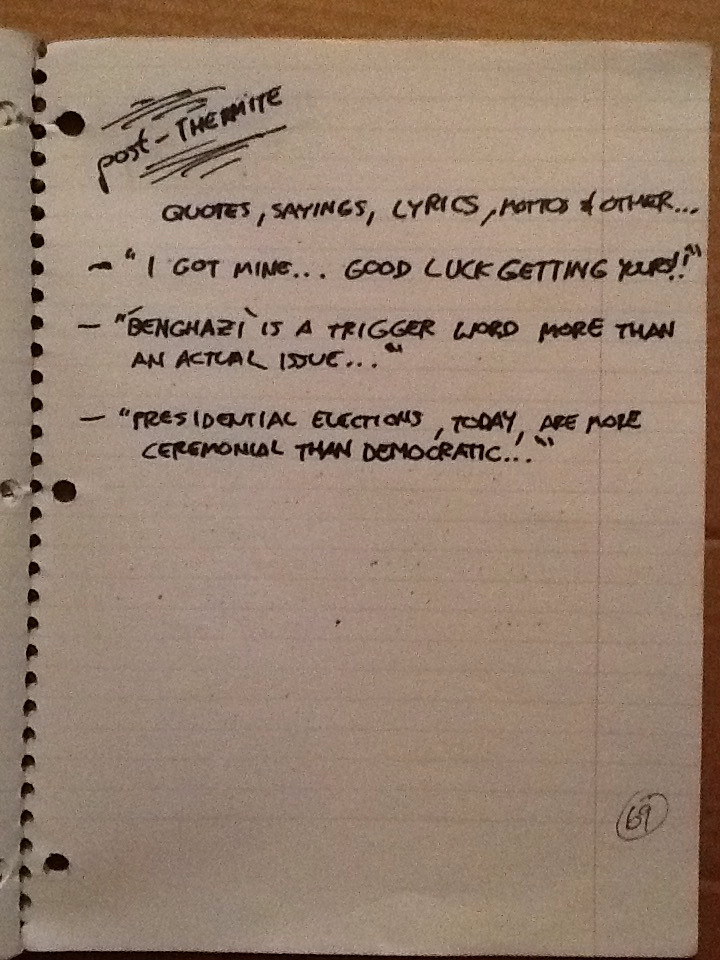 post-THERMITE
QUOTES, SAYINGS, LYRICS, MOTTOS & OTHER...
— "I GOT MINE... GOOD LUCK GETTING YOURS!!"
— "'BENGHAZI' IS A TRIGGER WORD MORE THAN
AN ACTUAL ISSUE..."
— "PRESIDENTIAL ELECTIONS, TODAY, ARE MORE
CEREMONIAL THAN DEMOCRATIC..."
69